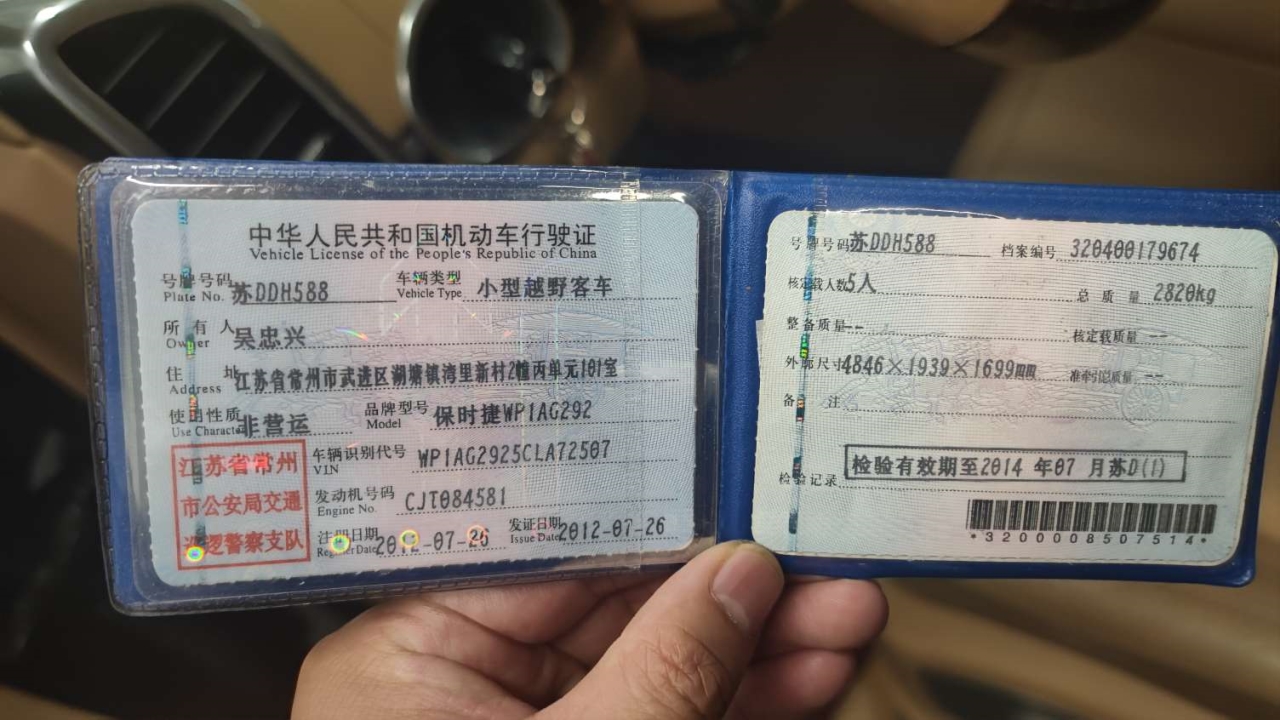 中华人民共和国机动车行驶证
Vehicle License of the People's Republic of China
号牌号码 苏DDH588 车辆类型 小型越野客车
Plate No. Vehicle Type
所有人 吴忠兴
Owner
住址 江苏省常州市武进区湖塘镇湾里新村2幢丙单元101室
Address
使用性质 非营运 品牌型号 保时捷WP1AG292
Use Character Model
江苏省常州
市公安局交通
巡逻警察支队
车辆识别代号 WP1AG2925CLA72507
VIN
发动机号码 CJT084581
Engine No.
注册日期 2012-07-26 发证日期 2012-07-26
Register Date Issue Date
号牌号码 苏DDH588 档案编号 320400179674
核定载人数 5人 总质量 2820kg
整备质量 -- 核定载质量 --
外部尺寸 4846×1939×1699mm 准牵引总质量 --
备注
检验记录 检验有效期至2014 年07 月苏D(1)
*3200008507514*